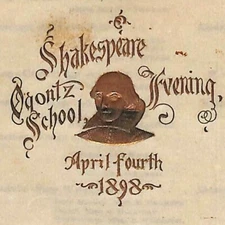 Shakespeare
Evening,
Ogontz
School,
April fourth
1898